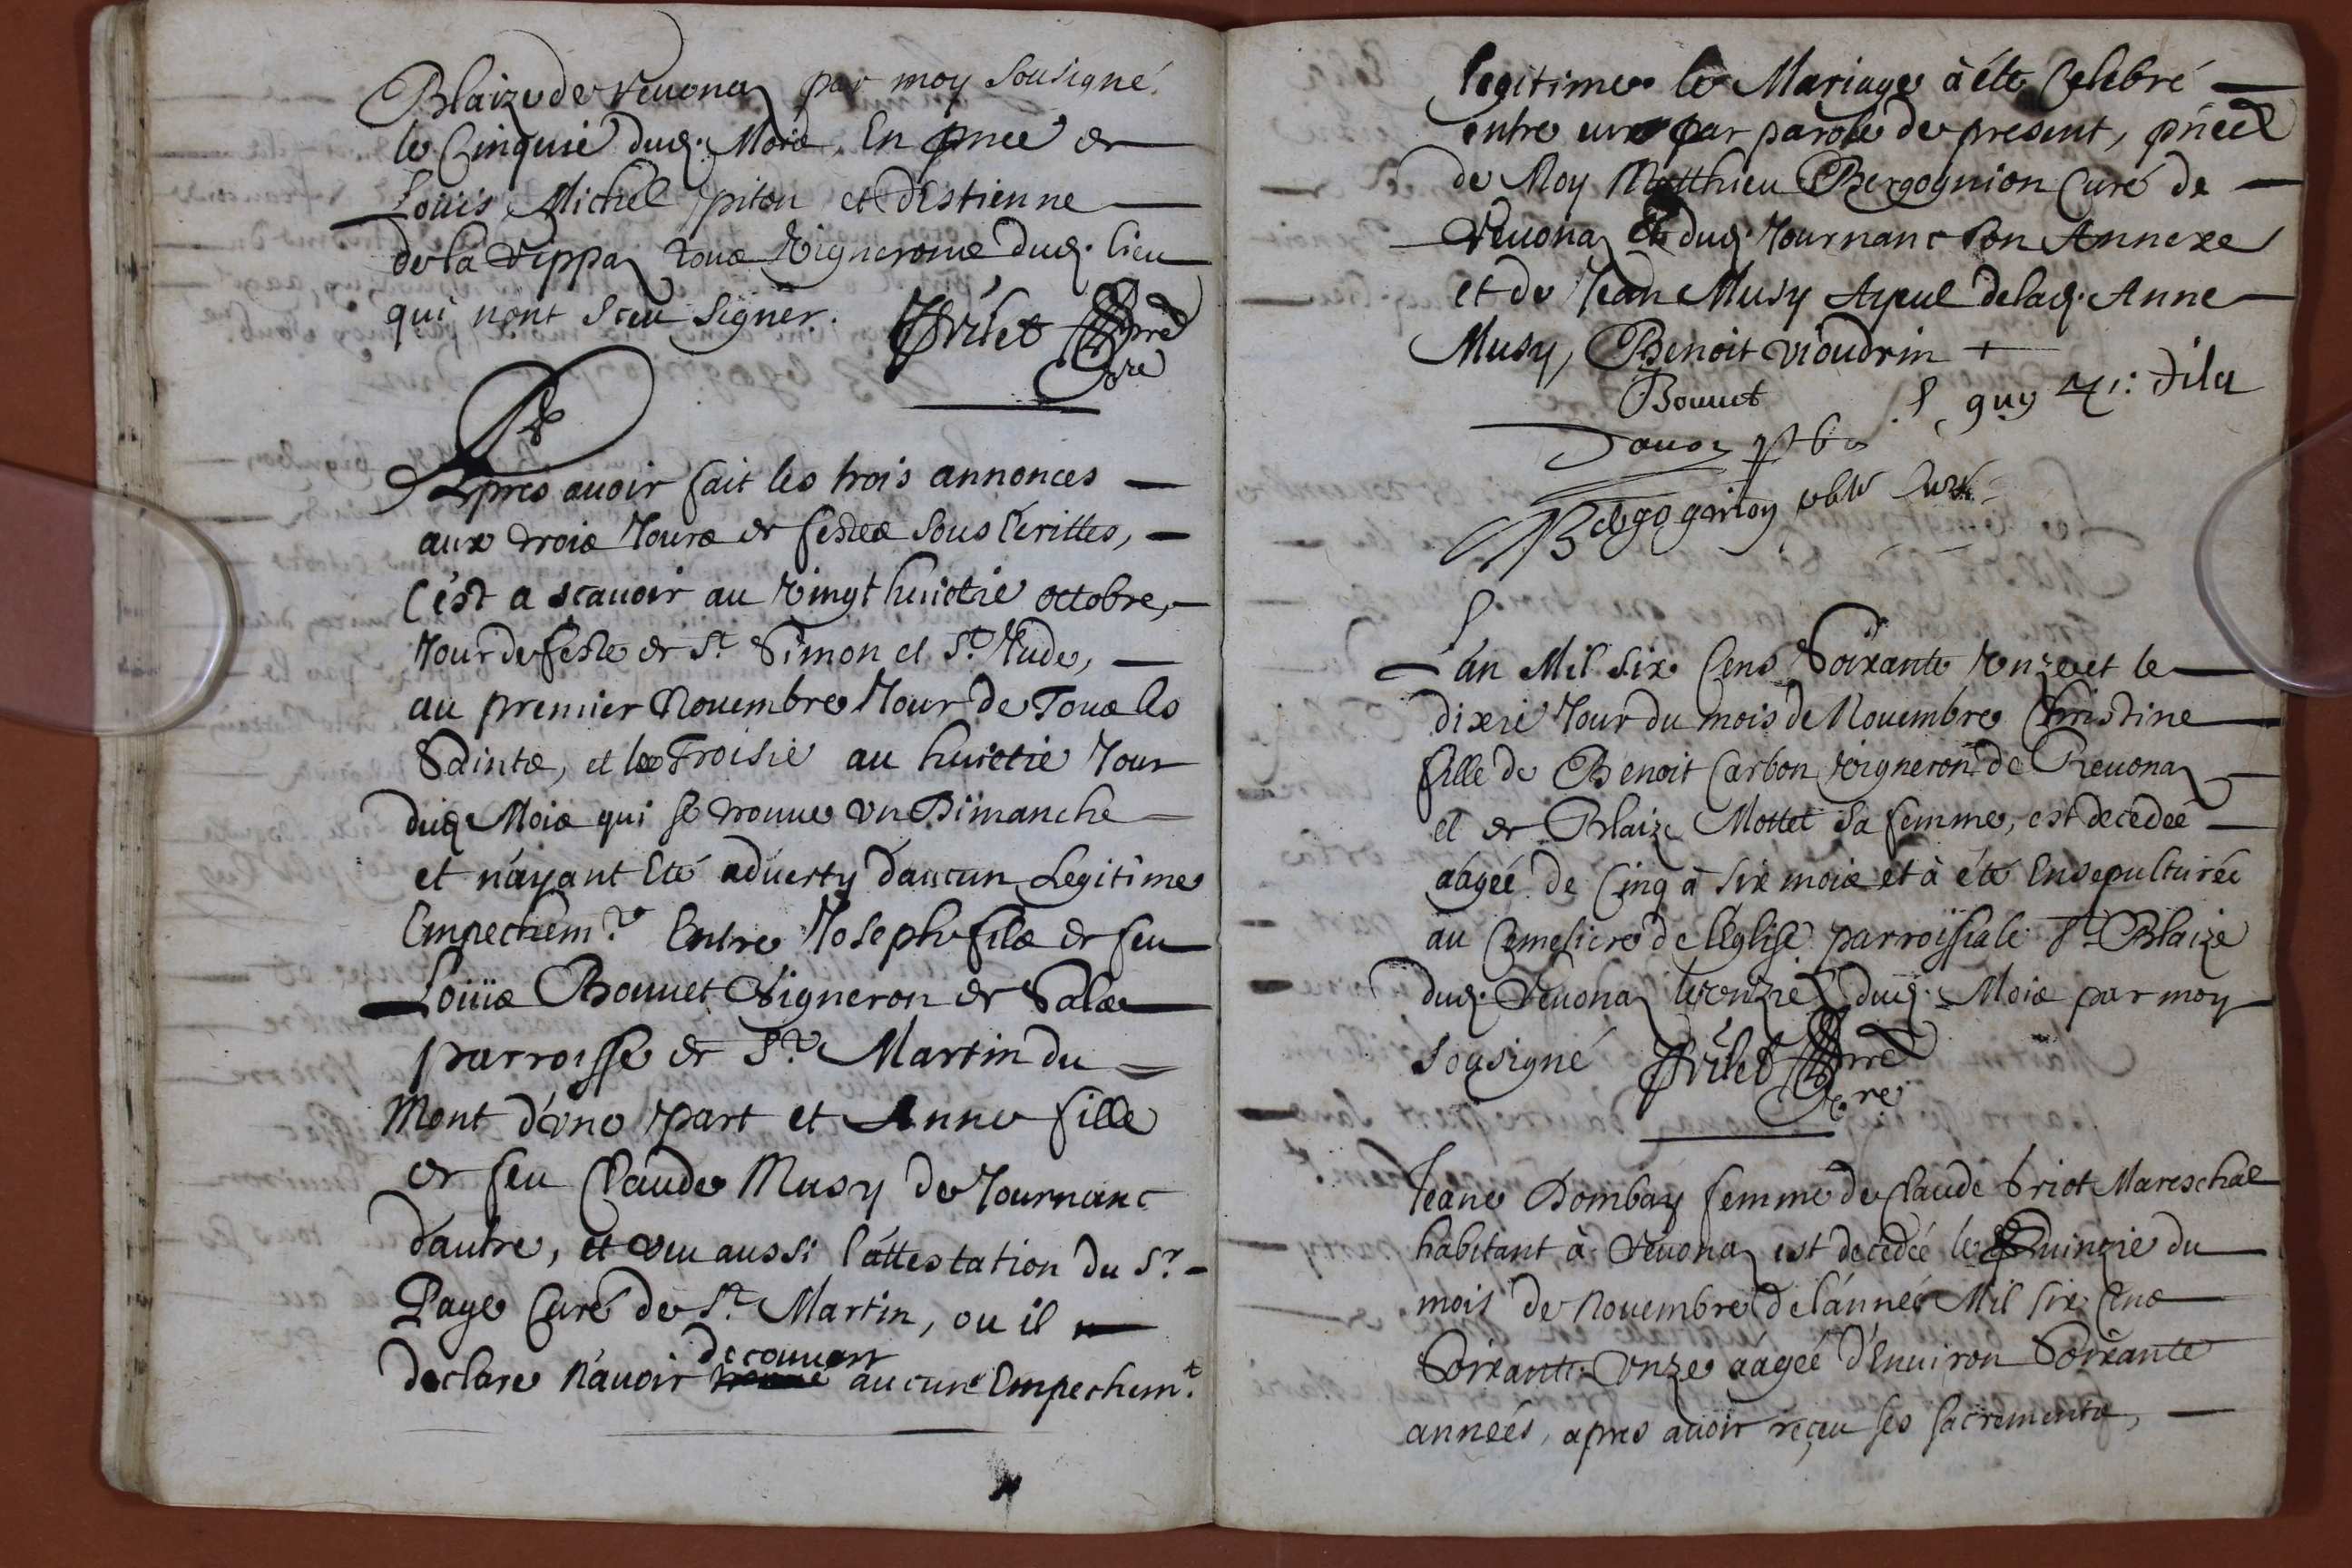 Blaize de Reuonaz par moy sousigné
le Cinquié dud. Mois, En pnce de
Louis Michel piton et d'Estienne
de la Vippaz tous Vignerons dud. lieu
qui n'ont sceu signer. Jvilet pre
Apres auoir fait les trois annonces
aux trois Jours de festes sous Écrittes,
C'est a scauoir au Vingt huictié octobre,
Jour de feste de St. Simon et St. Jude,
au premier Nouembre Jour de Tous les
Saints, et le Troisié au huictié Jour
dud. Mois qui se trouue Vn Dimanche
et n'ayant Eté aduerty d'aucun Legitime
Empechemt. Entre Joseph fils de feu
Loüis Bouuet Vigneron de Salas
parroisse de St. Martin du
Mont d'une part et Anne fille
de feu Claude Musy de Journanc
d'autre, et veu aussi l'attestation du Sr.
Page Curé de St. Martin, ou il
declare n'auoir decouuert aucune Empechemt.
legitimes le Mariage à été Celebré
entre eux par parole de present, pñces
de Moy Matthieu Bergognion Curé de
Reuonaz et dud. Journanc son Annexe
et de Jean Musy Ayeul de lad. Anne
Musy, Benoit vioudrin +
Bouuet
Bergognion pbtr Curé
L'an Mil six Cens Soixante Vnze et le
dixié Jour du mois de Nouembre Christine
fille de Benoit Carbon Vigneron de Reuonaz
et de Blaize Mottet sa femme, est decedeé
aàgeé de Cinq à six mois et à été Ensepulturée
au Cemesiere de l'Eglise parroissiale St. Blaize
dud. Reuonaz le onzié dud. Mois par moy
sousigné Jvilet pre
Jeane Dombay femme de Claude briot Mareschal
habitant à Reuonaz est decedeé le Quinzié du
mois de Nouembre de l'anneé Mil six Cens
Soixante Vnze aàgeé d'Enuiron Soixante
anneés, apres auoir reçeu ses sacrements,